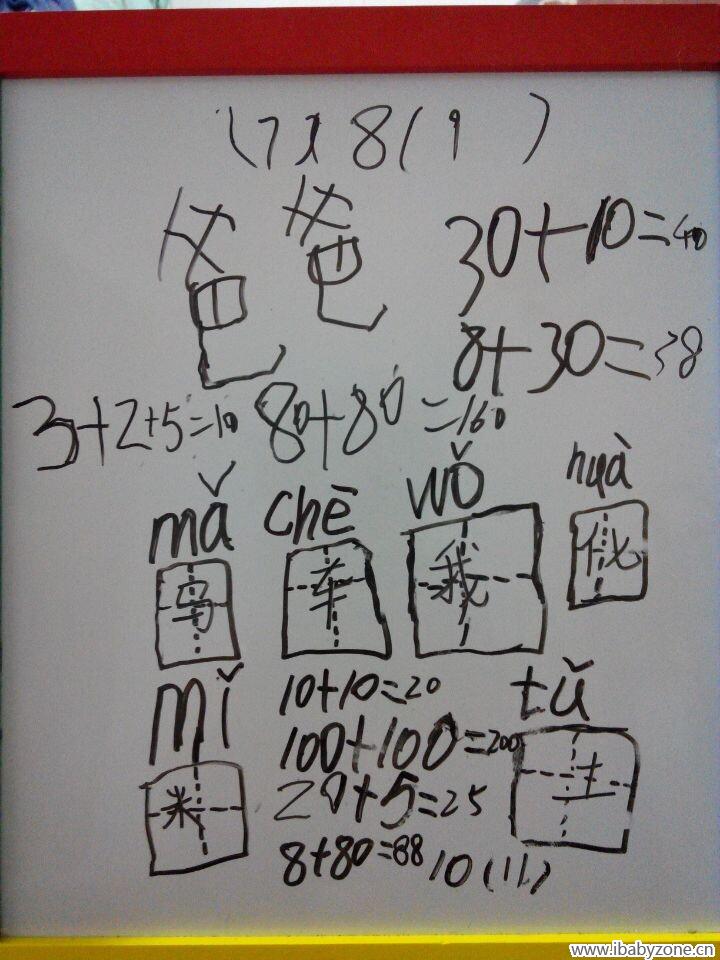 (7) 8 (9)
爸爸
30+10=40
8+30=38
3+2+5=10 80+80=160
mǎ chē wǒ huà
马 车 我 化
mǐ tǔ
米 土
10+10=20
100+100=200
20+5=25
8+80=88 10(11)
www.ibabyzone.cn